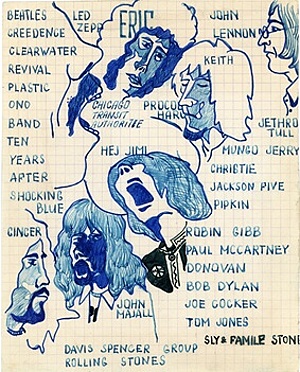 BEHTLES
LED
ZEPP
ERIC
JOHN
LENNON
CREEDENCE
CLEARWATER
REVIVAL
KEITH
PLASTIC
ONO
BAND
CHICAGO
TRANSIT
AUTHORITEE
PROCO
HARO
JETHRO
TULL
TEN
YEARS
AFTER
HEJ JIMI
MUNGO JERRY
CHRISTIE
JACKSON PIVE
PIPKIN
SHOCKING
BLUE
GINCER
ROBIN GIBB
PAUL MCCARTNEY
DONOVAN
BOB DYLAN
JOE COCKER
TOM JONES
SLY & FAMILE STONE
JOHN
MAJALL
DAVIS SPENCER GROUP
ROLLING STONES